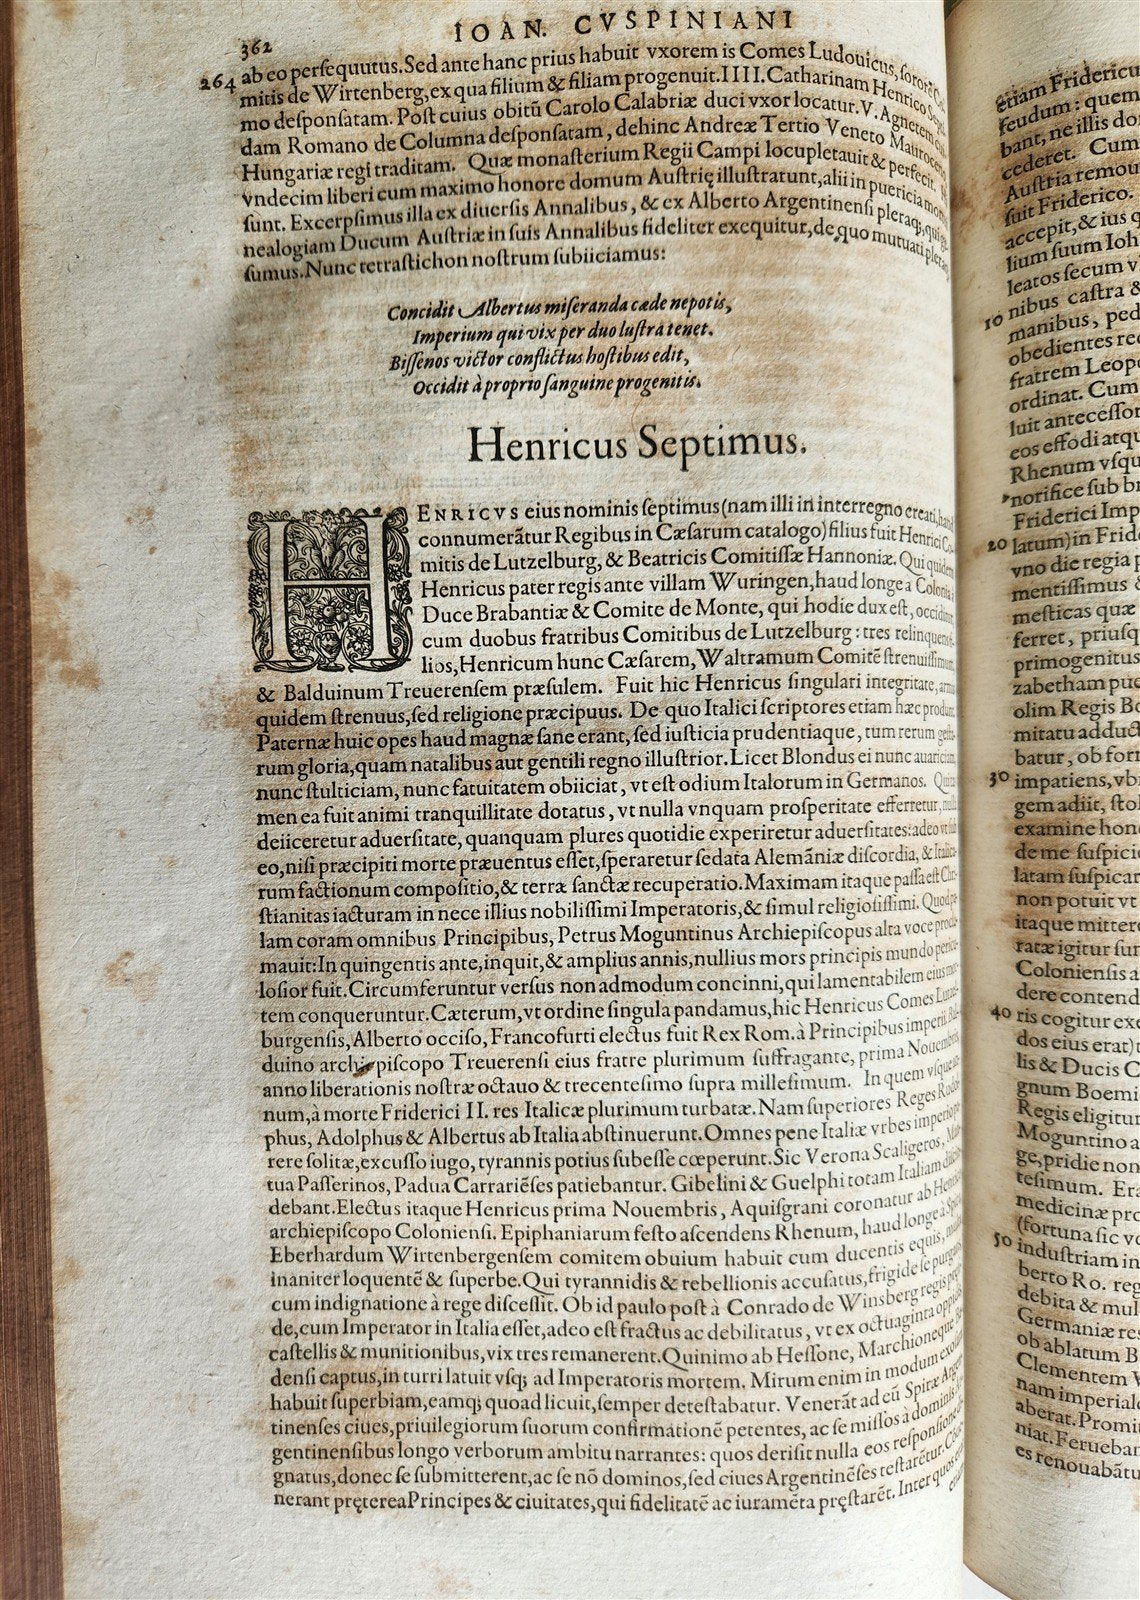 362
IOAN. CVSPINIANI
264 ab eo persequutus. Sed ante hanc prius habuit vxorem is Comes Ludouicus, sororē
mitis de Wirtenberg, ex qua filium & filiam progenuit. IIII. Catharinam Henrico Septi-
mo desponsatam. Post cuius obitū Carolo Calabriæ duci vxor locatur. V. Agnetem
dam Romano de Columna desponsatam, dehinc Andreæ Tertio Veneto Mauroceno
Hungariæ regi traditam. Quæ monasterium Regii Campi locupletauit & perfecit.
vndecim liberi cum maximo honore domum Austrię illustrarunt, alii in puericia mortui
sunt. Excerpsimus illa ex diuersis Annalibus, & ex Alberto Argentinensi pleraq;, qui ge-
nealogiam Ducum Austriæ in suis Annalibus fideliter exequitur, de quo mutuati pleraq;
sumus. Nunc tetrastichon nostrum subiiciamus:
Concidit Albertus miseranda cæde nepotis,
Imperium qui vix per duo lustra tenet.
Bissenos victor conflictus hostibus edit,
Occidit à proprio sanguine progenitis.
Henricus Septimus.
HENRICVS eius nominis septimus (nam illi in interregno creati, haud
connumerātur Regibus in Cæsarum catalogo) filius fuit Henrici Co-
mitis de Lutzelburg, & Beatricis Comitissæ Hannoniæ. Qui quidem
Henricus pater regis ante villam Wuringen, haud longe a Colonia à
Duce Brabantiæ & Comite de Monte, qui hodie dux est, occiditur
cum duobus fratribus Comitibus de Lutzelburg: tres relinquens fi-
lios, Henricum hunc Cæsarem, Waltramum Comitē strenuissimum,
& Balduinum Treuerensem præsulem. Fuit hic Henricus singulari integritate, armis
quidem strenuus, sed religione præcipuus. De quo Italici scriptores etiam hæc produnt.
Paternæ huic opes haud magnæ sane erant, sed iusticia prudentiaque, tum rerum gesta-
rum gloria, quam natalibus aut gentili regno illustrior. Licet Blondus ei nunc auariciam,
nunc stulticiam, nunc fatuitatem obiiciat, vt est odium Italorum in Germanos. Quin ta-
men ea fuit animi tranquillitate dotatus, vt nulla vnquam prosperitate efferretur, nulla
deiiceretur aduersitate, quanquam plures quotidie experiretur aduersitates: adeo vt sub
eo, nisi præcipiti morte præuentus esset, speraretur sedata Alemāniæ discordia, & Italica-
rum factionum compositio, & terræ sanctæ recuperatio. Maximam itaque passa est Chri-
stianitas iacturam in nece illius nobilissimi Imperatoris, & simul religiosissimi. Quod pa-
lam coram omnibus Principibus, Petrus Moguntinus Archiepiscopus alta voce procla-
mauit: In quingentis ante, inquit, & amplius annis, nullius mors principis mundo pericu-
losior fuit. Circumferuntur versus non admodum concinni, qui lamentabilem eius mor-
tem conqueruntur. Cæterum, vt ordine singula pandamus, hic Henricus Comes Lutzel-
burgensis, Alberto occiso, Francofurti electus fuit Rex Rom. à Principibus imperii, Bal-
duino archiepiscopo Treuerensi eius fratre plurimum suffragante, prima Nouembris,
anno liberationis nostræ octauo & trecentesimo supra millesimum. In quem vsque an-
num, à morte Friderici II. res Italicæ plurimum turbatæ. Nam superiores Reges Rudol-
phus, Adolphus & Albertus ab Italia abstinuerunt. Omnes pene Italiæ vrbes imperio pa-
rere solitæ, excusso iugo, tyrannis potius subesse cœperunt. Sic Verona Scaligeros, Man-
tua Passerinos, Padua Carrariēses patiebantur. Gibelini & Guelphi totam Italiam diui-
debant. Electus itaque Henricus prima Nouembris, Aquisgrani coronatur ab Henrico
archiepiscopo Coloniensi. Epiphaniarum festo ascendens Rhenum, haud longe à Spira
Eberhardum Wirtenbergensem comitem obuium habuit cum ducentis equis,
inaniter loquentē & superbe. Qui tyrannidis & rebellionis accusatus, frigide se purgans
cum indignatione à rege discessit. Ob id paulo post à Conrado de Winsberg regis præsi-
de, cum Imperator in Italia esset, adeo est fractus ac debilitatus, vt ex octuaginta oppidis
castellis & munitionibus, vix tres remanerent. Quinimo ab Hessone, Marchioneque Ba-
densi captus, in turri latuit vsq; ad Imperatoris mortem. Mirum enim in modum exosam
habuit superbiam, eamq; quoad licuit, semper detestabatur. Venerāt ad eū Spiræ Argen-
tinenses ciues, priuilegiorum suorum confirmationē petentes, ac se missos à dominis Ar-
gentinensibus longo verborum ambitu narrantes: quos derisit nulla eos responsione di-
gnatus, donec se submitterent, ac se nō dominos, sed ciues Argentinēses testarētur.
nerant pręterea Principes & ciuitates, qui fidelitatē ac iuramēta pręstarēt. Inter quos
etiam Fridericu
feudum: quem
bant, ne illis do
cederet. Cum
Austria remou
suit Friderico.
accepit, & ius q
lium suum Ioh
leatos secum v
10 nibus castra &
manibus, ped
obedientes re
fratrem Leopo
ordinat. Cum
luit antecessor
eos effodi atqu
Rhenum vsqu
norifice sub br
Friderici Imp
20 latum) in Frid
vno die regia p
mentissimus
mesticas quæ
ferret, priusq
primogenitus
zabetham pue
olim Regis Bo
mitatu adduct
batur, ob form
30 impatiens, vbi
gem adiit, stol
examine hon
de me suspicio
latam suspicar
non potuit vt
itaque mittere
ratæ igitur sun
Coloniensis a
dere contend
40 ris cogitur exe
dos eius erat)
lis & Ducis C
gnum Boemi
Regis eligitur
Moguntino a
ge, pridie non
tesimum. Era
medicinæ pro
(fortuna sic vo
50 industriam in
berto Ro. reg
debita & mul
Germaniæ res
ob ablatum B
Clementem V
nam imperiale
aberat. Promi
niat. Feruebant
es renouabātu